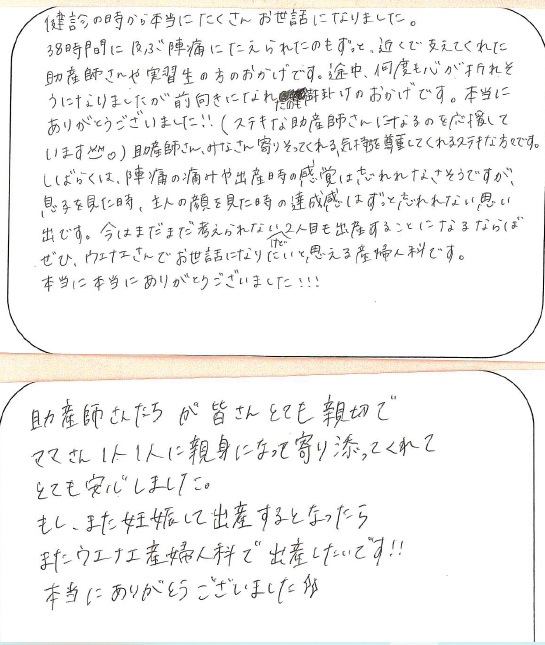 健診の時から本当にたくさんお世話になりました。
38時間に及ぶ陣痛にたえられたのもずっと、近くで支えてくれた
助産師さんや実習生の方のおかげです。途中、何度も心が折れそ
うになりましたが前向きになれた声掛けのおかげです。本当に
ありがとうございました!!(ステキな助産師さんになるのを応援して
います。)助産師さん、みなさん寄りそってくれる、気持ちを尊重してくれるステキな方々です。
しばらくは、陣痛の痛みや出産時の感覚は忘れれなさそうですが、
息子を見た時、主人の顔を見た時の達成感はずっと忘れれない思い
出です。今はまだまだ考えられないけど2人目も出産することになるならば
ぜひ、ウエナエさんでお世話になりたいと思える産婦人科です。
本当に本当にありがとうございました!!!
助産師さんたちが皆さんとても親切で
ママさん1人1人に親身になって寄り添ってくれて
とても安心しました。
もし、また妊娠して出産するとなったら
またウエナエ産婦人科で出産したいです!!
本当にありがとうございました